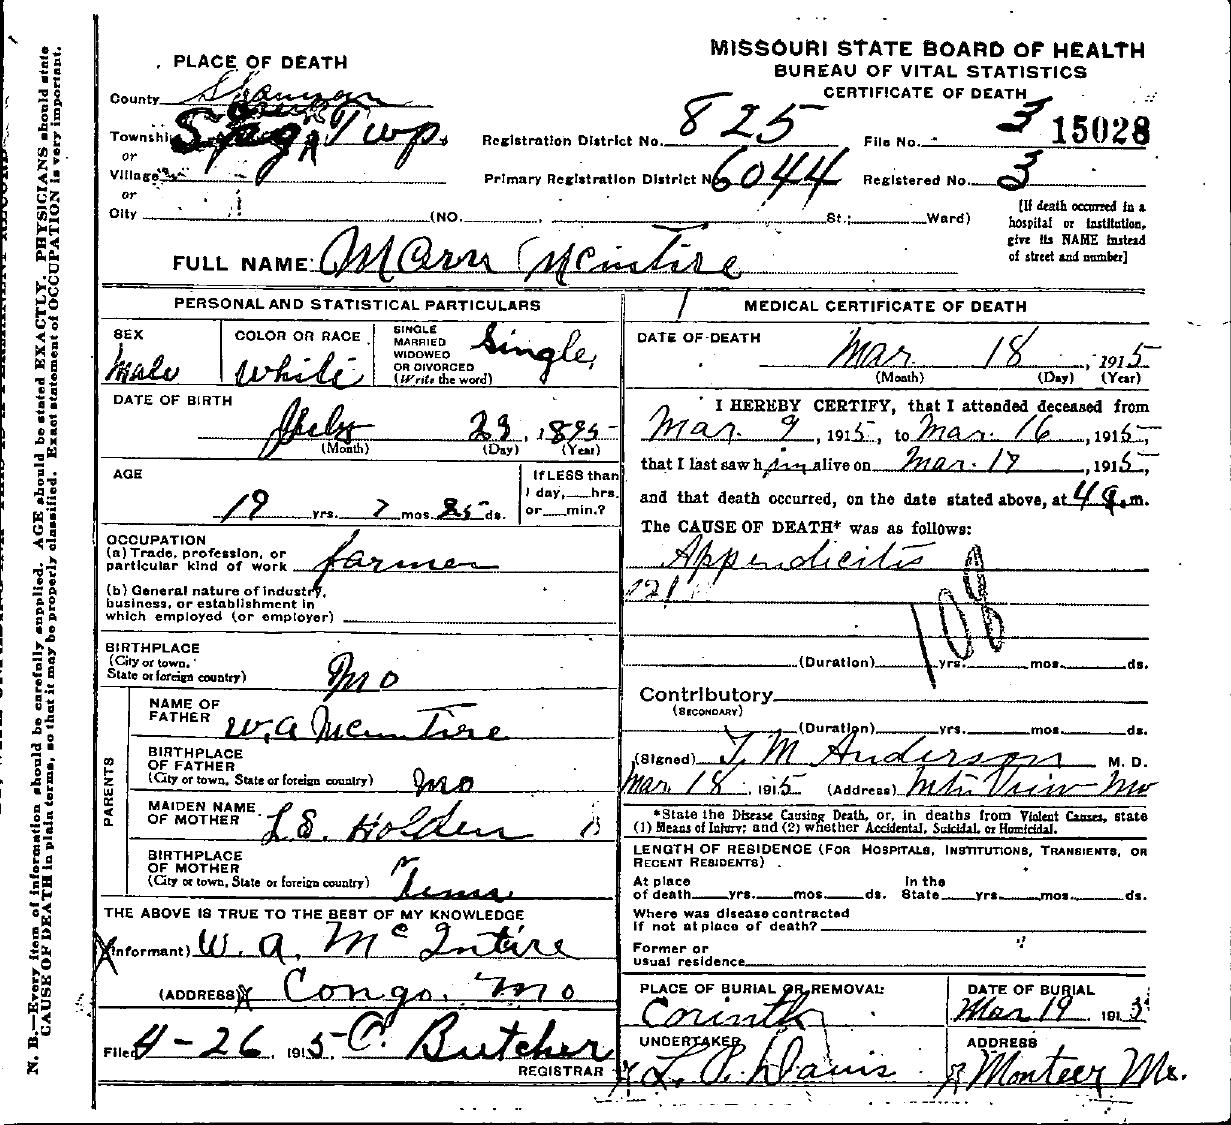 MISSOURI STATE BOARD OF HEALTH
BUREAU OF VITAL STATISTICS
CERTIFICATE OF DEATH
PLACE OF DEATH
County Shannon
Township Twp.
or
Village
or
City (NO. St.; Ward)
Registration District No. 825
File No. 3 15028
Primary Registration District No. 6044
Registered No. 3
[If death occurred in a hospital or institution, give its NAME instead of street and number]
FULL NAME McIntire
PERSONAL AND STATISTICAL PARTICULARS
SEX Male
COLOR OR RACE White
SINGLE MARRIED WIDOWED OR DIVORCED (Write the word) Single
DATE OF BIRTH
(Month) 23 (Day) 1895 (Year)
AGE
19 yrs. mos. 25 ds.
If LESS than 1 day, hrs. or min.?
OCCUPATION
(a) Trade, profession, or particular kind of work farmer
(b) General nature of industry, business, or establishment in which employed (or employer)
BIRTHPLACE
(City or town, State or foreign country) Mo
PARENTS
NAME OF FATHER W.A McIntire
BIRTHPLACE OF FATHER
(City or town, State or foreign country) Mo
MAIDEN NAME OF MOTHER L.S. Holden
BIRTHPLACE OF MOTHER
(City or town, State or foreign country) Tenn
THE ABOVE IS TRUE TO THE BEST OF MY KNOWLEDGE
(Informant) W. A. McIntire
(ADDRESS) Congo, Mo
Filed 4-26 1915 C. Butcher
REGISTRAR
MEDICAL CERTIFICATE OF DEATH
DATE OF DEATH
Mar 18, 1915
(Month) (Day) (Year)
I HEREBY CERTIFY, that I attended deceased from
Mar. 9, 1915, to Mar. 16, 1915,
that I last saw him alive on Mar. 17, 1915,
and that death occurred, on the date stated above, at 4 a.m.
The CAUSE OF DEATH* was as follows:
Appendicitis
121
108
(Duration) yrs. mos. ds.
Contributory
(SECONDARY)
(Duration) yrs. mos. ds.
(Signed) T. M Anderson M. D.
Mar. 18, 1915 (Address) Mtn View Mo
*State the Disease Causing Death, or, in deaths from Violent Causes, state
(1) Means of Injury; and (2) whether Accidental, Suicidal, or Homicidal.
LENGTH OF RESIDENCE (FOR HOSPITALS, INSTITUTIONS, TRANSIENTS, OR RECENT RESIDENTS)
At place of death yrs. mos. ds. In the State yrs. mos. ds.
Where was disease contracted if not at place of death?
Former or usual residence
PLACE OF BURIAL OR REMOVAL: Corinth
DATE OF BURIAL Mar 19 1915
UNDERTAKER L. P. Davis
ADDRESS Monteer Mo.
N. B.—Every item of information should be carefully supplied. AGE should be stated EXACTLY. PHYSICIANS should state
CAUSE OF DEATH in plain terms, so that it may be properly classified. Exact statement of OCCUPATION is very important.